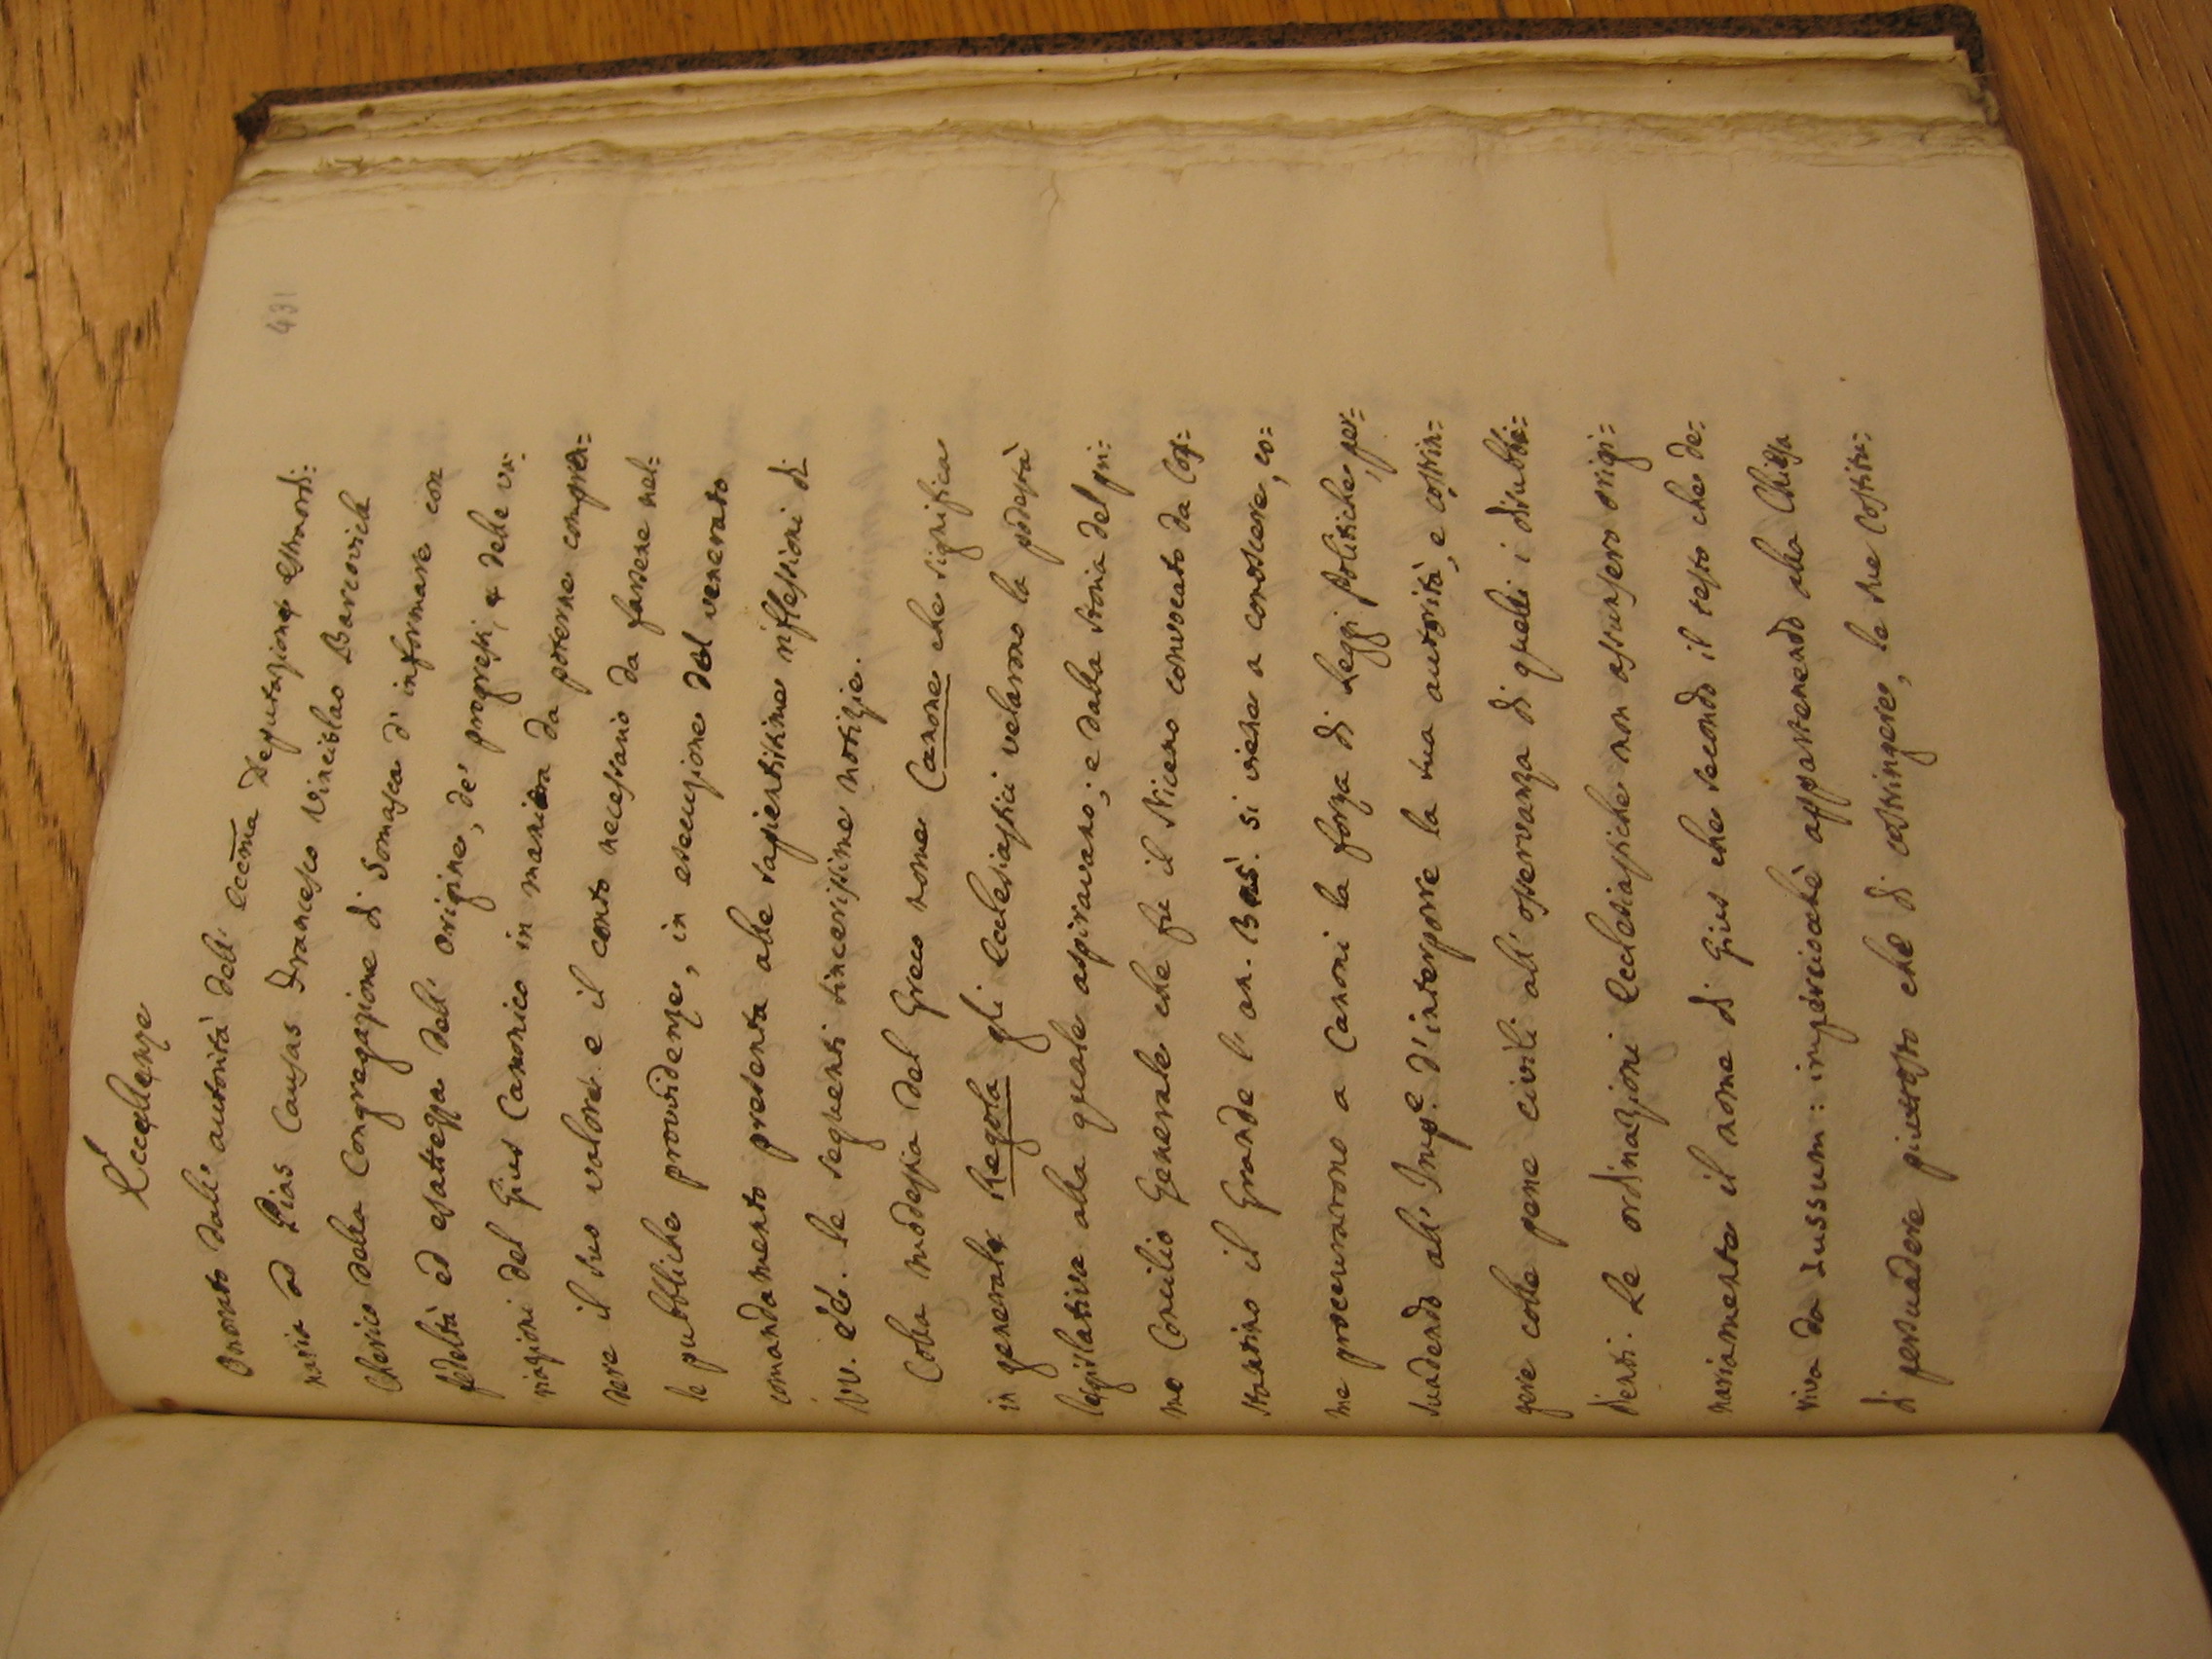 431
Eccellenze
Onorato dall' autorità dell' Eccma Deputazione estraordi:
naria ad Pias Causas Francesco Vincislao Barcovich
Cherico della Congregazione di Somasca d' informare con
fedeltà ed esattezza dell' origine, de' progressi, e delle va:
riazioni del Gius Canonico in maniera da poterne compren=
dere il suo valore e il conto necessario da farsene nel:
le pubbliche providenze, in esecuzione del venerato
comandamento presenta alle sapientissime riflessioni di
VV. EE. le seguenti sincerissime notizie.
Colla modestia del Greco nome Canone che significa
in generale Regola gli Ecclesiastici velarono la podestà
legislativa alla quale aspiravano; e dalla storia del pri:
mo Concilio Generale che fu il Niceno convocato da Cos=
stantino il Grande l' an. si viene a conoscere, co=
me proccurarono a Canoni la forza di Leggi Politiche, per=
suadendo all' Impe. d' interporre la sua autorità, e costrin=
gere colle pene civili all' osservanza di quelli i disubbi=
dienti. Le ordinazioni Ecclesiastiche non assunsero origi=
nariamente il nome di Gius che secondo il testo che de:
riva da Iussum: imperciocchè appartenendo alla Chiesa
di persuadere piuttosto che di costringere, le sue Costitu: